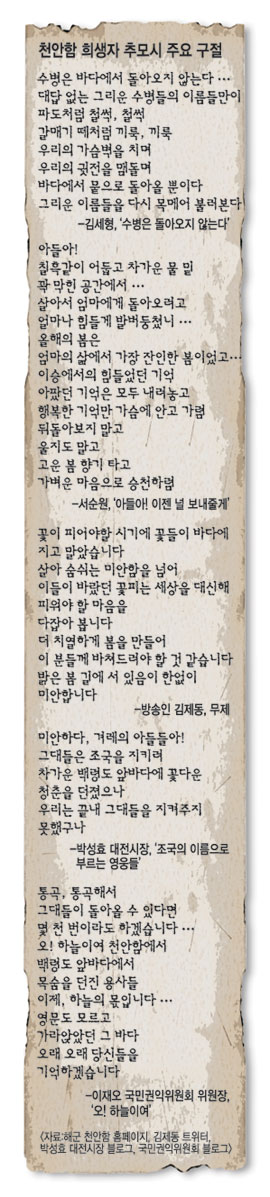 천안함 희생자 추모시 주요 구절
수병은 바다에서 돌아오지 않는다 …
대답 없는 그리운 수병들의 이름들만이
파도처럼 철썩, 철썩
갈매기 떼처럼 끼룩, 끼룩
우리의 가슴벽을 치며
우리의 귓전을 맴돌며
바다에서 뭍으로 돌아올 뿐이다
그리운 이름들을 다시 목메어 불러본다
–김세형, '수병은 돌아오지 않는다'
아들아!
칠흑같이 어둡고 차가운 물 밑
꽉 막힌 공간에서 …
살아서 엄마에게 돌아오려고
얼마나 힘들게 발버둥쳤니 …
올해의 봄은
엄마의 삶에서 가장 잔인한 봄이었고…
이승에서의 힘들었던 기억
아팠던 기억은 모두 내려놓고
행복한 기억만 가슴에 안고 가렴
뒤돌아보지 말고
울지도 말고
고운 봄 향기 타고
가벼운 마음으로 승천하렴
–서순원, '아들아! 이젠 널 보내줄게'
꽃이 피어야할 시기에 꽃들이 바다에
지고 말았습니다
살아 숨쉬는 미안함을 넘어
이들이 바랐던 꽃피는 세상을 대신해
피워야 할 마음을
다잡아 봅니다
더 치열하게 봄을 만들어
이 분들께 바쳐드려야 할 것 같습니다
밝은 봄 길에 서 있음이 한없이
미안합니다
–방송인 김제동, 무제
미안하다, 겨레의 아들들아!
그대들은 조국을 지키려
차가운 백령도 앞바다에 꽃다운
청춘을 던졌으나
우리는 끝내 그대들을 지켜주지
못했구나
–박성효 대전시장, '조국의 이름으로
부르는 영웅들'
통곡, 통곡해서
그대들이 돌아올 수 있다면
몇 천 번이라도 하겠습니다 …
오! 하늘이여 천안함에서
백령도 앞바다에서
목숨을 던진 용사들
이제, 하늘의 몫입니다 …
영문도 모르고
가라앉았던 그 바다
오래 오래 당신들을
기억하겠습니다
–이재오 국민권익위원회 위원장,
'오! 하늘이여'
〈자료:해군 천안함 홈페이지, 김제동 트위터,
박성효 대전시장 블로그, 국민권익위원회 블로그〉